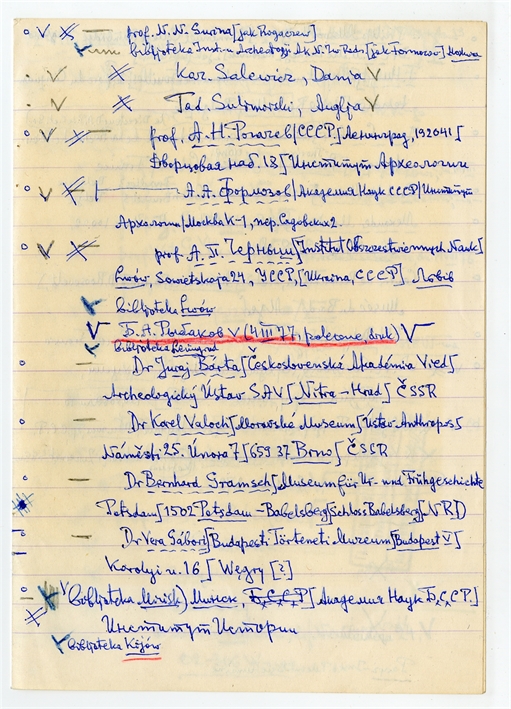 prof. N. N. Gurina [jak Rogaczew]
biblioteka Inst-u Archeologji Ak. N. Zw. Radz. [jak Formozow] Moskwa
Kaz. Salewicz, Dania V
Tad. Sulimirski, Anglja V
prof. А.Н. Рогачев [СССР] Ленинград, 192041 [
Дворцовая наб. 18 [Институт Археологии
А.А. Формозов [Академия Наук СССР [Институт
Археологии [Москва К-1, пер. Садовских 2
prof. А.П. Черныш [Institut Obszczestwiennych Nauk]
Lwów, Sowietskaja 24, УССР, [Ukraina, СССР] Львів
biblioteka Lwów
V Б.А. Рыбаков V (4 III 77, polecone druk) V
biblioteka Leningrad
Dr Juraj Bárta [Československá Akadémia Vied]
Archeologický Ústav SAV [Nitra – Hrad] ČSSR
Dr Karel Valoch [Moravské Museum [Ústav Anthropos]
Náměstí 25. Února 7 [659 37 Brno] ČSSR
Dr Bernhard Gramsch [Museum für Ur- und Frühgeschichte
Potsdam [1502 Potsdam-Babelsberg [Schloss Babelsberg] NRD
Dr Vera Gábori [Budapesti Történeti Múzeum [Budapest V]
Karolyi u. 16] Węgry [?]
V biblioteka Mińsk) Минск, Б.С.С.Р. [Академия Наук Б.С.С.Р]
Институт Истории
biblioteka Kijów